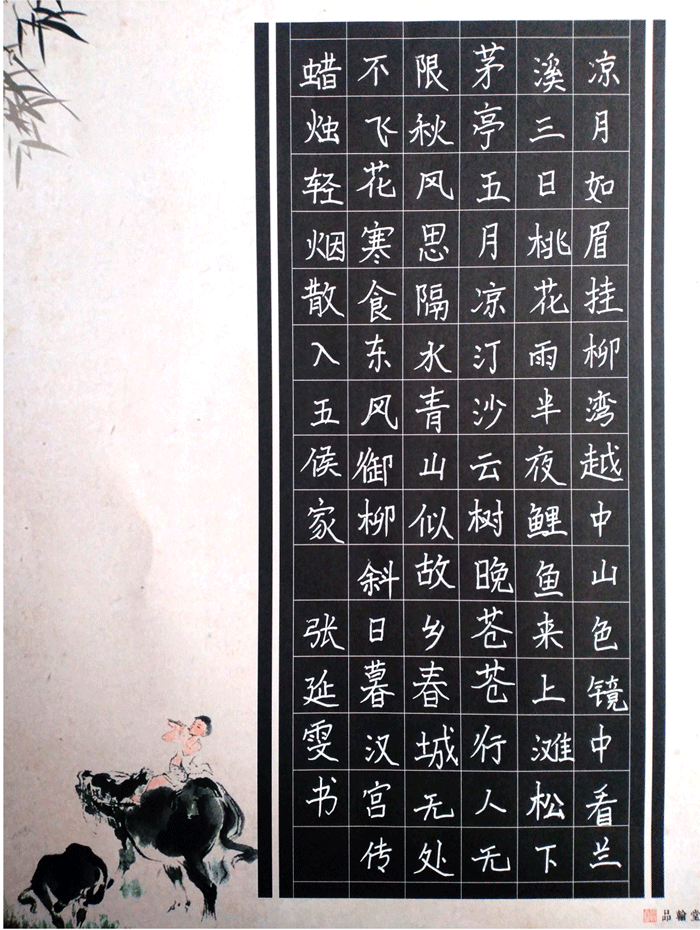 凉月如眉挂柳湾越中山色镜中看兰
溪三日桃花雨半夜鲤鱼来上滩松下
茅亭五月凉汀沙云树晚苍苍行人无
限秋风思隔水青山似故乡春城无处
不飞花寒食东风御柳斜日暮汉宫传
蜡烛轻烟散入五侯家 张延雯书
品翰堂